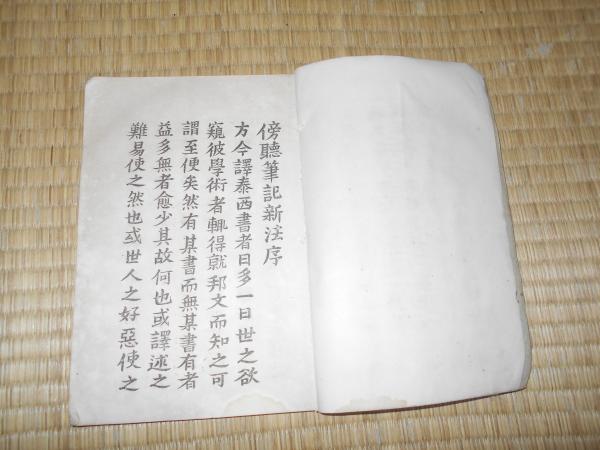 傍聽筆記新註序
方今譯泰西書者日多一日世之欲
窺彼學術者輒得就邦文而知之可
謂至便矣然有某書而無某書有者
益多無者愈少其故何也或譯述之
難易使之然也或世人之好惡使之